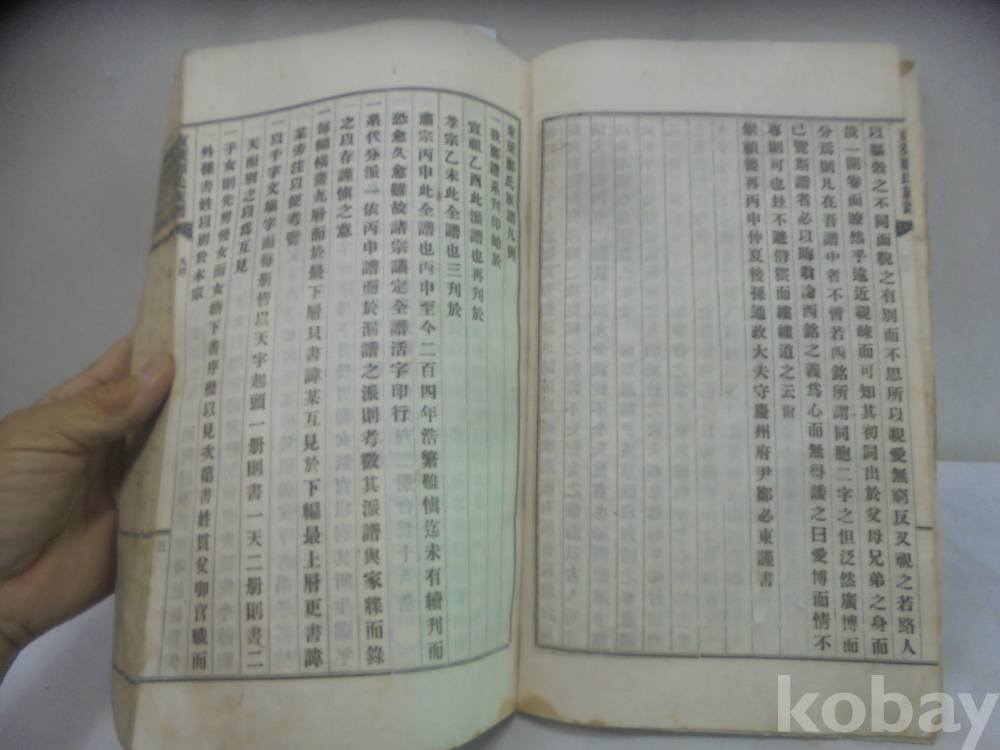 以軀殼之不同而貌之有別而不思所以親愛無窮反又視之若路人
哉一開卷而瞭然乎遠近親疎而可知其初同出於父母兄弟之身而
分焉則凡在吾譜中者不啻若西銘所謂同胞二字之但泛然廣博而
已覽斯譜者必以晦翁論西銘之義爲心而無得諉之曰愛博而情不
專則可也玆不避僭猥而縷縷道之云爾
崇禎後再丙申仲夏後孫通政大夫守慶州府尹鄭必東謹書
東萊鄭氏族譜凡例
一我鄭譜系刊印始於
宣祖乙酉此派譜也再刊於
孝宗乙未此全譜也三刊於
肅宗丙申此全譜也丙申至今二百四年浩繁難愼迄未有續刊而
恐愈久愈難故諸宗議定全譜活字印行
一系代分派一依丙申譜而於漏譜之派則考徵其派譜與家牒而錄
之以存謹愼之意
一每編橫畫九層而於最下層只書諱某互見於下編最上層更書諱
某旁注以便考覽
一以千字文塡字而每册皆以天字起頭一册則書一天二册則書二
天而別之以爲互見
一子女則先男後女而女婿下書序幾以見次第書姓貫父啣官職而
外孫書姓以別於本宗
凡例
三
kobay